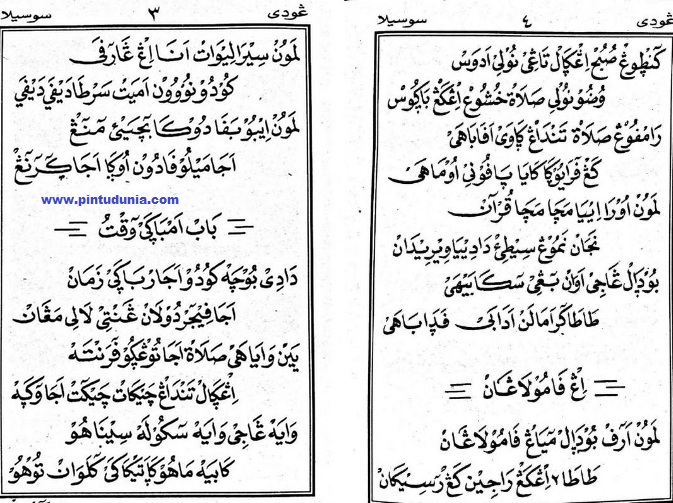 سوسيلا ٣ ڠودي
لمَون سيرا ليوات انا اڠ ڠارفى
كودو نووون اميت سرطا ديفى ديفى
لمون ايبو بفا دوكا بچيئي منڠ
اجا ميلو فادون اوڮا اجا ڮرنڠڠ
www.pintudunia.com
باب امباڮي وقت
دادي بوچه كودو اجار باڮي زمان
اجا فيجر دولان ڠنتي لالي مڠان
يين وايا هي صلاة اجا توڠڮو فرنته
اڠڮال تنداڠ چيكات چيكت اجا وڮه
وايه ڠاجي وايه سكوله سيناهو
كابيه ماهو ڮاتيكاكي كلوان توهو
سوسيلا ٤ ڠودي
كنطوڠ صبح اڠڮال تاڠي نولي ادوس
وضو نولي صلاة خشوع اڠكڠ باڮوس
رامفوڠ صلاة تنداڠ ڮاوي افا باهي
كڠ فرايوڮا كايا پافوني اوماهي
لمون اورا اييا مچا مچا قرآن
نجان نموڠ سيطئ دادييا ويريدان
بودال ڠاجي اوان بڠي سكابيهي
طاطاكراما لن ادابي فدا باهي
اڠ فامولاڠان
لمون ارف بودال مياڠ فامولاڠان
طاطا٢ اڠكڠ راجين كڠ رسيكان